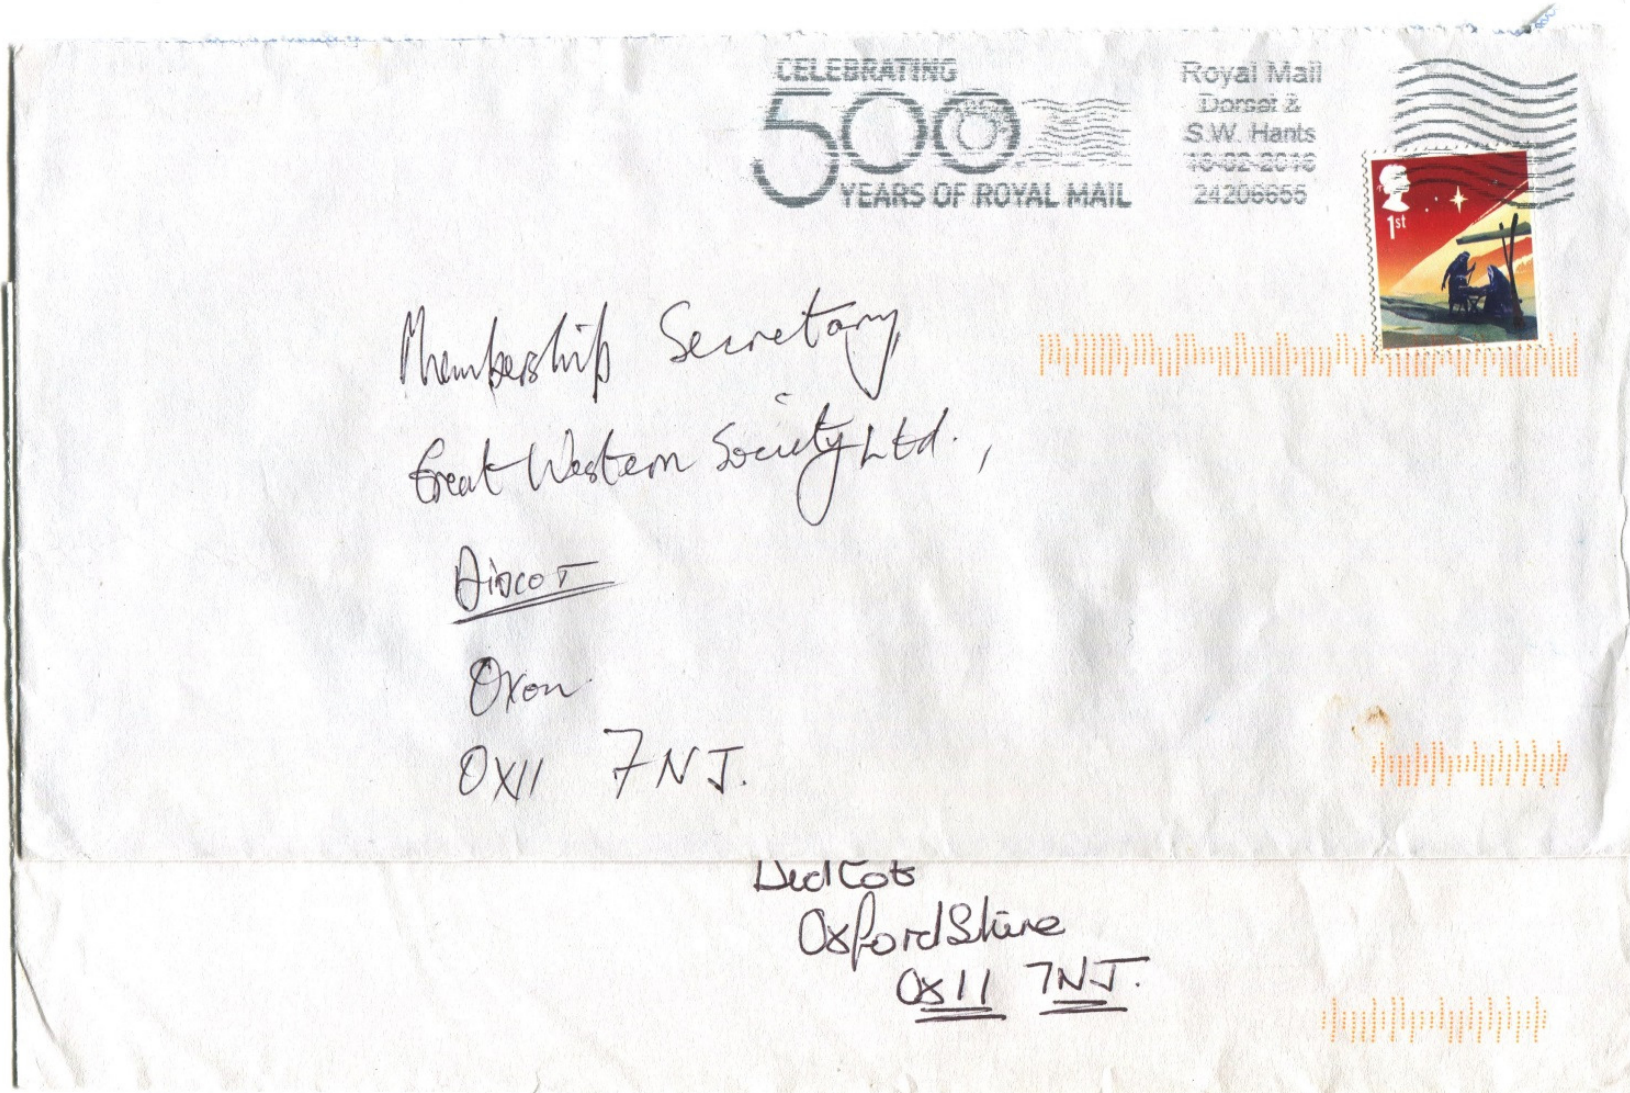 CELEBRATING
500
YEARS OF ROYAL MAIL
Royal Mail
Dorset &
S.W. Hants
16-02-2016
24206655
1st
Membership Secretary
Great Western Society Ltd.,
DIDCOT
Oxon
OX11 7NJ.
Didcot
OxfordShire
OX11 7NJ.